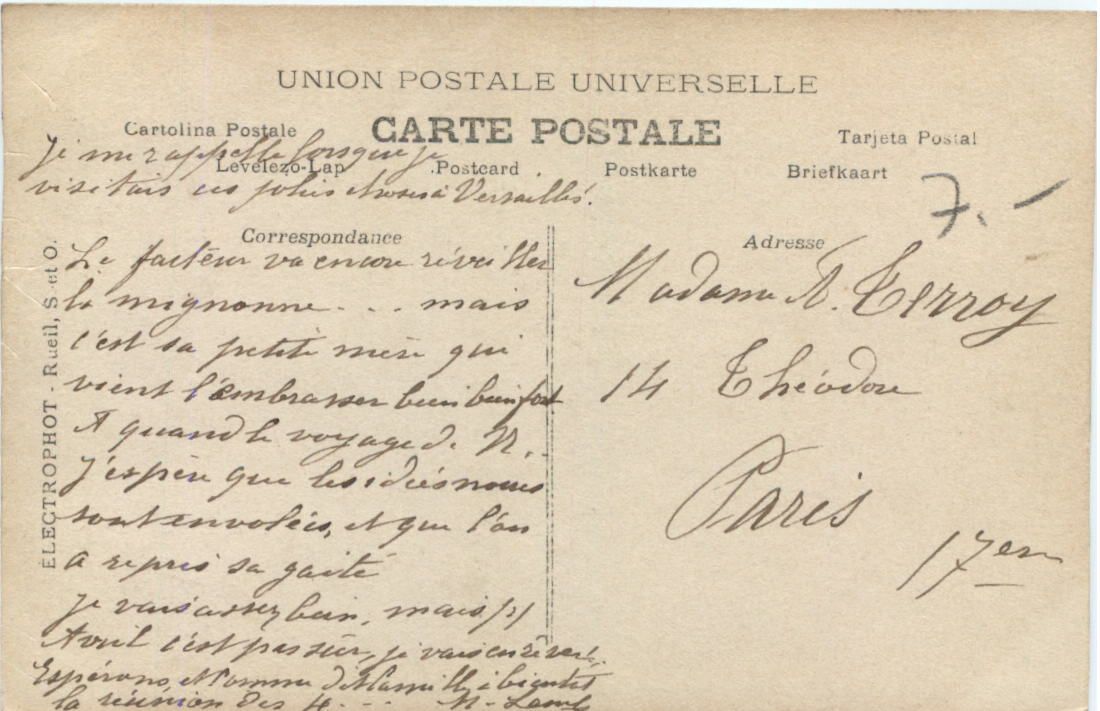 UNION POSTALE UNIVERSELLE
Cartolina Postale CARTE POSTALE Tarjeta Postal
Levelezo-Lap Postcard Postkarte Briefkaart
Je me rappelle lorsque je
visitais ces jolies choses à Versailles.
7.-
Correspondance
Le facteur va encore réveiller
la mignonne . . . mais
c'est sa petite mère qui
vient l'embrasser bien bien fort
A quand le voyage de N..
J'espère que les idées noires
sont envolées, et que l'on
a repris sa gaité
je vais assez bien, mais
Avril c'est pas sûr, je vais en rêver.
Espérons à bientôt
la réunion des 4 . . .
Adresse
Madame A. Terroy
14 Théodore
Paris
17em
ELECTROPHOT - Rueil, S. et O.